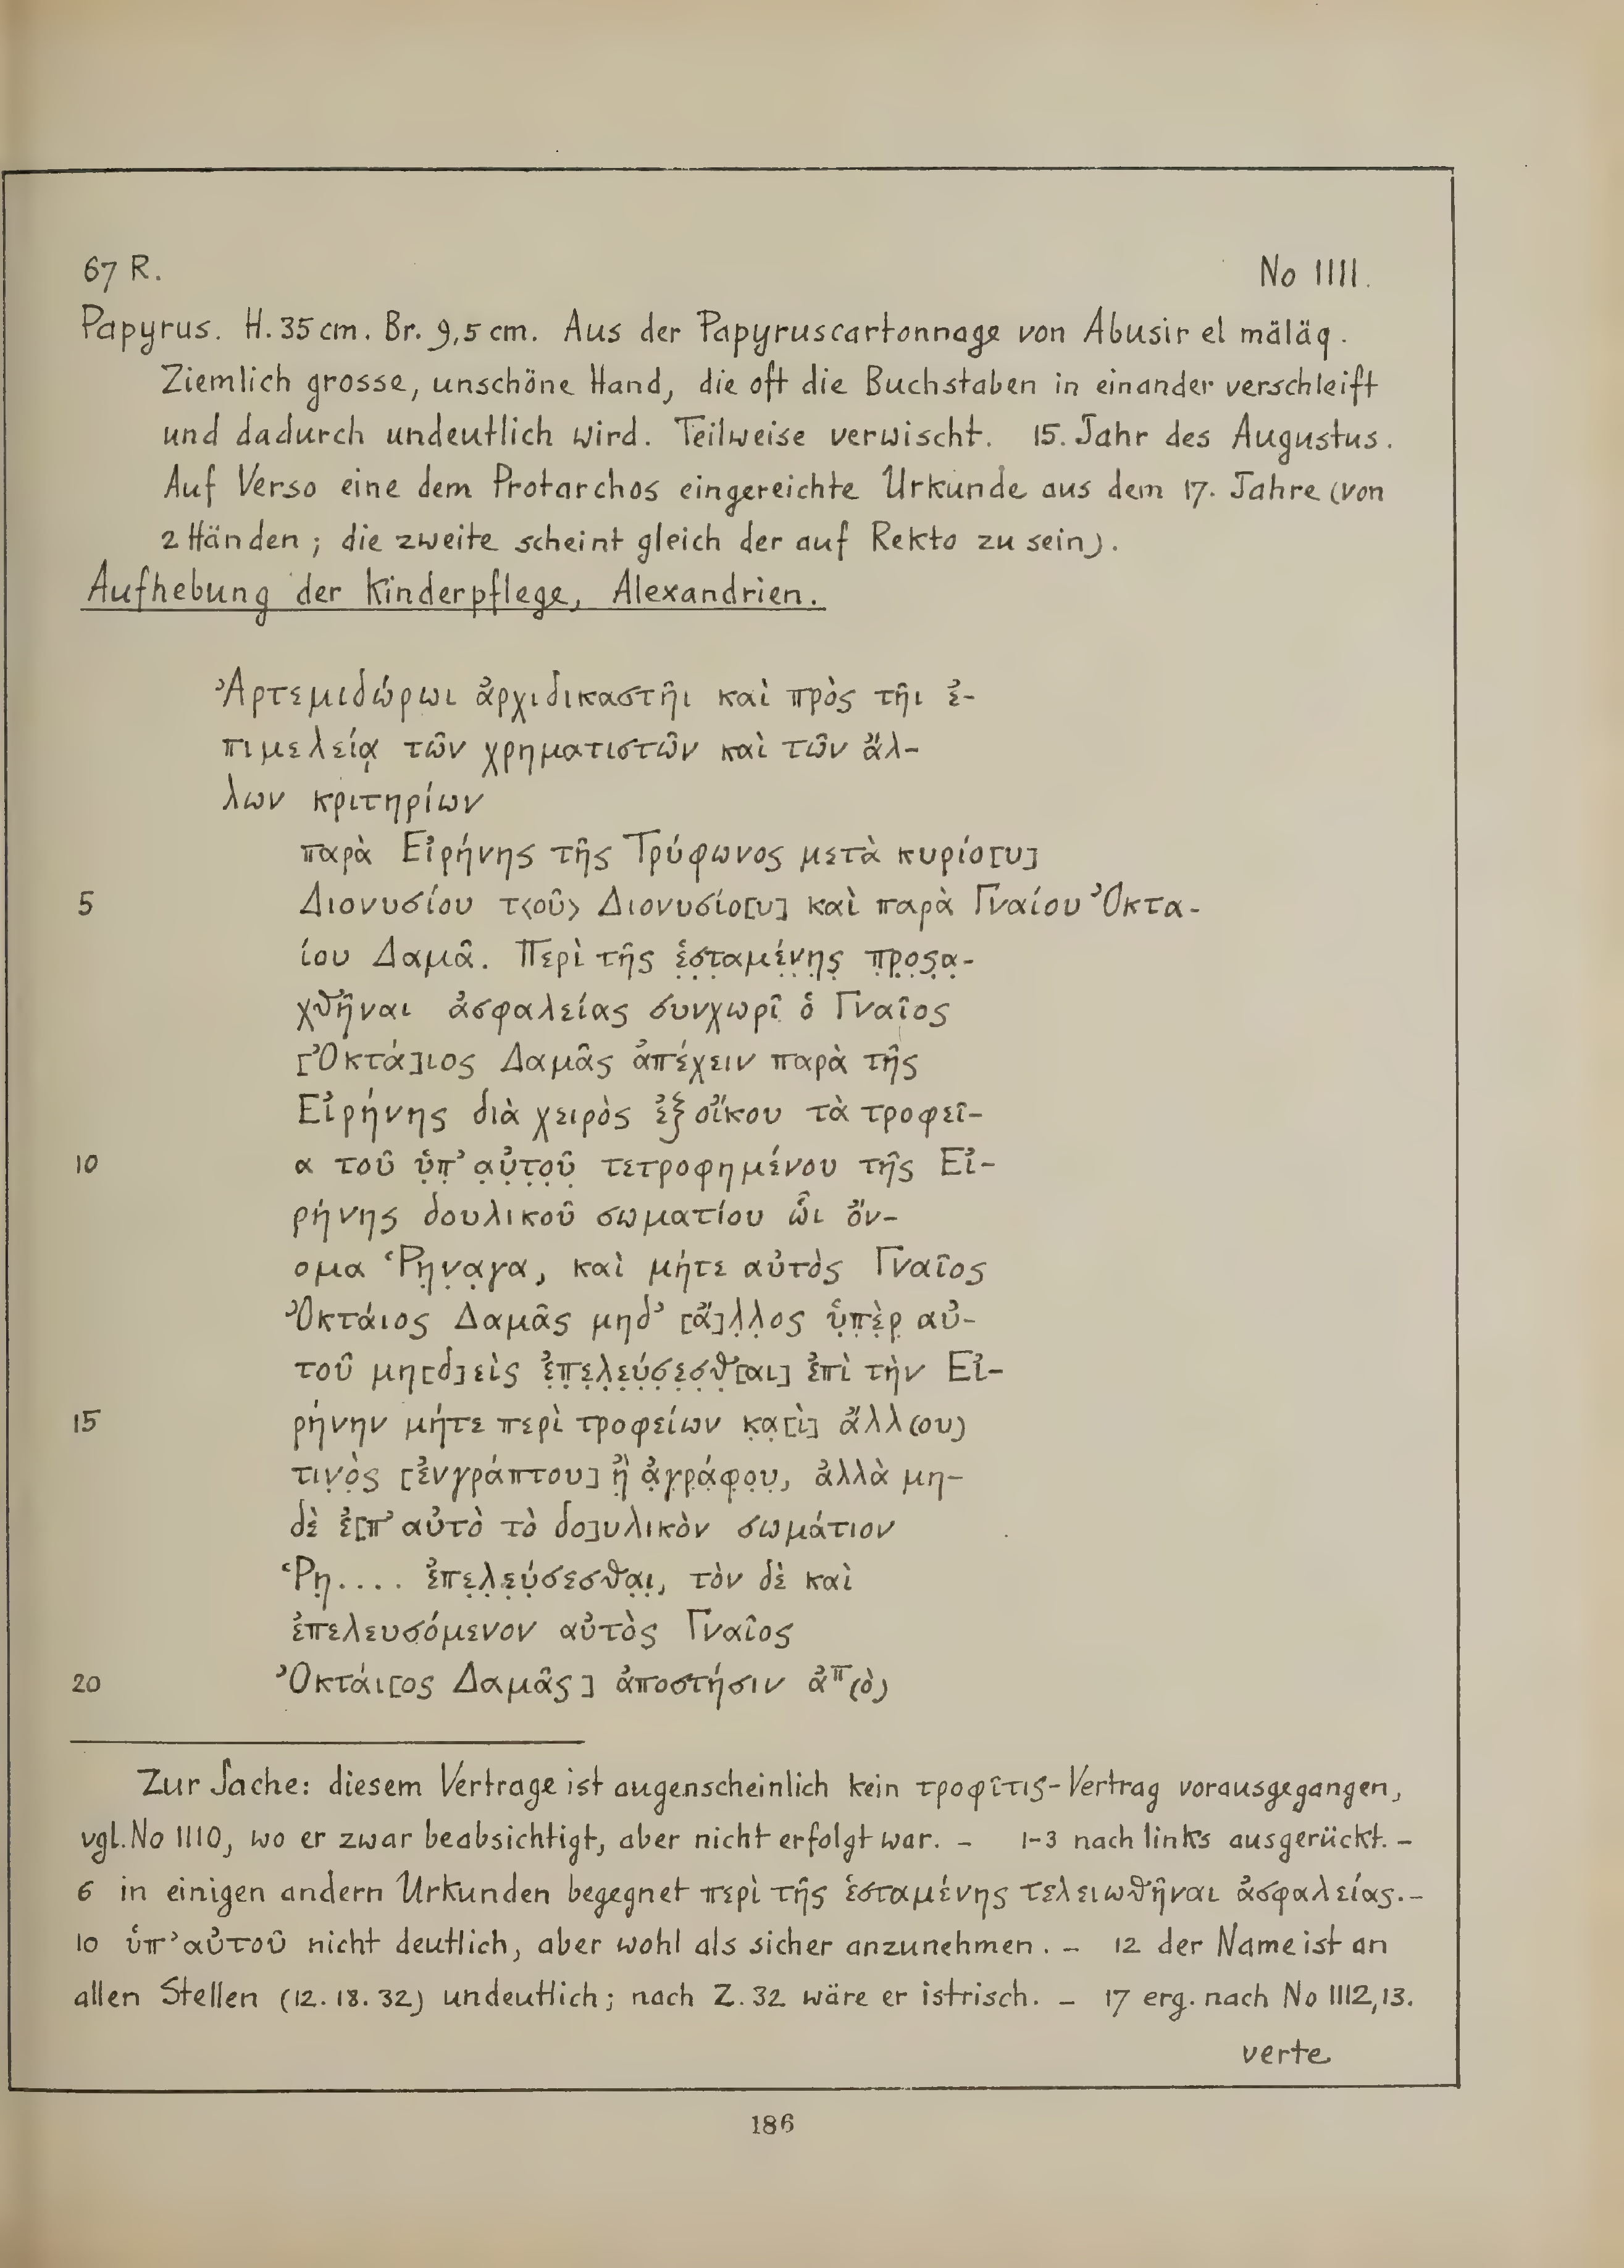 67 R. No 1111.
Papyrus. H. 35 cm. Br. 9,5 cm. Aus der Papyruscartonnage von Abusir el mäläq.
Ziemlich grosse, unschöne Hand, die oft die Buchstaben in einander verschleift
und dadurch undeutlich wird. Teilweise verwischt. 15. Jahr des Augustus.
Auf Verso eine dem Protarchos eingereichte Urkunde aus dem 17. Jahre (von
2 Händen; die zweite scheint gleich der auf Rekto zu sein).
Aufhebung der Kinderpflege, Alexandrien.
Ἀρτεμιδώρωι ἀρχιδικαστῆι καὶ πρὸς τῆι ἐ-
πιμελείᾳ τῶν χρηματιστῶν καὶ τῶν ἄλ-
λων κριτηρίων
παρὰ Εἰρήνης τῆς Τρύφωνος μετὰ κυρίο[υ]
5 Διονυσίου τ<οῦ> Διονυσίο[υ] καὶ παρὰ Γναίου Ὀκτα-
ίου Δαμᾶ. Περὶ τῆς ἑ̣σ̣τ̣αμέ̣ν̣η̣ς̣ π̣ρ̣ο̣σ̣α̣-
χθῆναι ἀσφαλείας συνχωρῖ ὁ Γναῖος
[Ὀκτά]ιος Δαμᾶς ἀπέχειν παρὰ τῆς
Εἰρήνης διὰ χειρὸς ἐξ οἴκου τὰ τροφεῖ-
10 α τοῦ ὑ̣π̣’ α̣ὐ̣τ̣ο̣ῦ̣ τετροφημένου τῆς Εἰ-
ρήνης δουλικοῦ σωματίου ὧι ὄν-
ομα Ῥη̣ν̣α̣γα, καὶ μήτε αὐτὸς Γναῖος
Ὀκτάιος Δαμᾶς μηδ’ [ἄ]λ̣λ̣ος ὑ̣π̣ὲ̣ρ̣ αὐ-
τοῦ μη[δ]εὶς ἐ̣π̣ε̣λ̣ε̣ύ̣σ̣ε̣σ̣θ̣[αι] ἐπὶ τὴν Εἰ-
15 ρήνην μήτε περὶ τροφείων κ̣α̣[ὶ] ἄλλ(ου)
τιν̣ὸ̣ς [ἐνγράπτου] ἢ̣ ἀ̣γ̣ρ̣ά̣φ̣ο̣υ̣, ἀλλὰ μη-
δὲ ἐ[π’ αὐτὸ τὸ δο]υλικὸν σωμάτιον
Ῥη̣.... ἐπε̣λ̣ε̣ύ̣σεσθα̣ι̣, τὸν δὲ καὶ
ἐπελευσόμενον αὐτὸς Γναῖος
20 Ὀκτάι[ος Δαμᾶς] ἀποστήσιν ἀπ(ὸ)
Zur Sache: diesem Vertrage ist augenscheinlich kein τροφῖτις-Vertrag vorausgegangen,
vgl. No 1110, wo er zwar beabsichtigt, aber nicht erfolgt war. – 1-3 nach links ausgerückt. –
6 in einigen andern Urkunden begegnet περὶ τῆς ἑσταμένης τελειωθῆναι ἀσφαλείας. –
10 ὑπ’ αὐτοῦ nicht deutlich, aber wohl als sicher anzunehmen. – 12 der Name ist an
allen Stellen (12. 18. 32) undeutlich; nach Z. 32 wäre er istrisch. – 17 erg. nach No 1112, 13.
verte
186